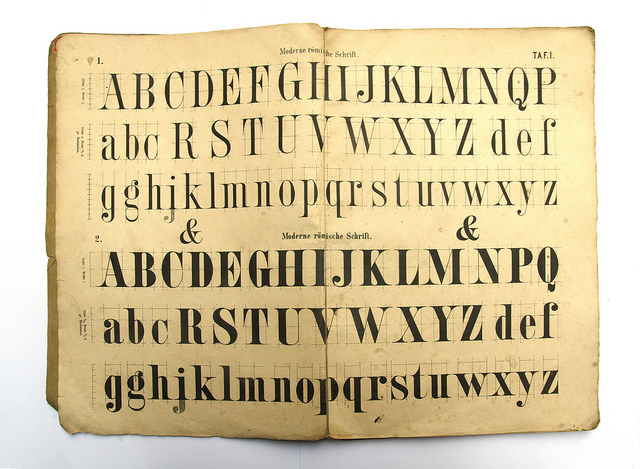 1. Moderne römische Schrift. TAF. 1.
ABCDEFGHIJKLMNQP
abc RSTUVWXYZ def
gghjklmnopqrstuvwxyz
& &
2. Moderne römische Schrift.
ABCDEGHIJKLMNPQ
abc RSTUVWXYZ def
gghjklmnopqrstuwxyz